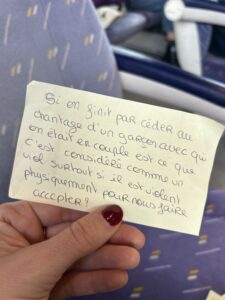 Si on finit par céder au
chantage d'un garçon avec qui
on était en couple est ce que
c'est considéré comme un
viol surtout si il est violent
physiquement pour nous faire
accepter?